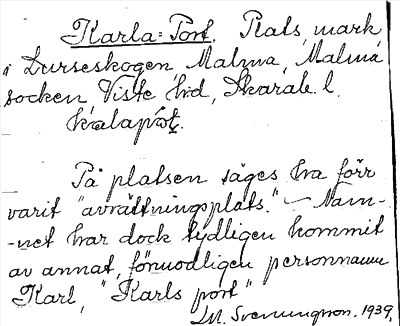 Karla=Port. Plats, mark
i Lurseskogen, Malma, Malma
socken, Viste hd, Skarab. l.
På platsen säges ha förr
varit "avrättningsplats." — Nam-
-net har dock tydligen kommit
av annat, förmodligen personnamn
Karl, "Karls port"
Svenungson. 1939.